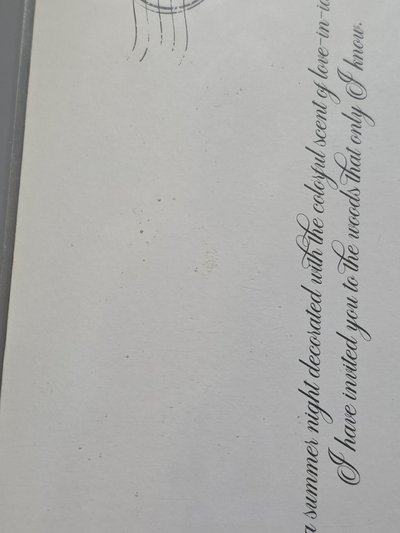 a summer night decorated with the colorful scent of love-in-id
I have invited you to the woods that only I know.